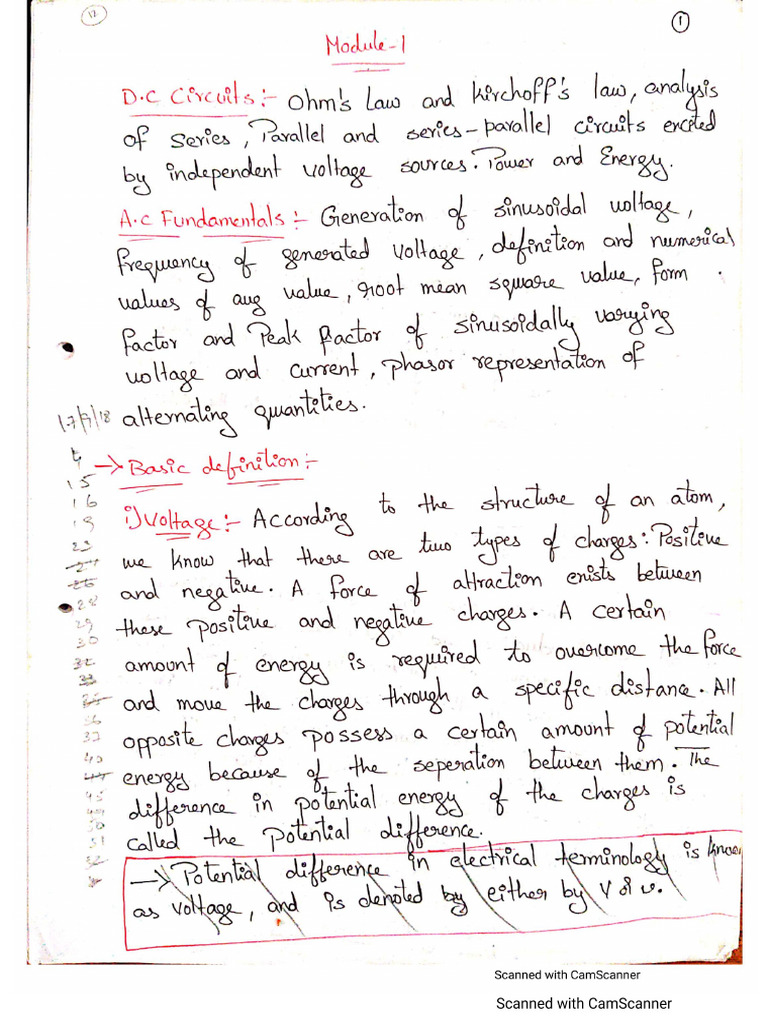 12
1
Module-1
D.C Circuits:- Ohm's Law and Kirchoff's law, analysis
of series, Parallel and series-parallel circuits excited
by independent voltage sources. Power and Energy.
A.C Fundamentals:- Generation of sinusoidal voltage,
frequency of generated voltage, definition and numerical
values of avg value, root mean square value, form
factor and Peak factor of sinusoidally varying
voltage and current, phasor representation of
alternating quantities.
→ Basic definition:-
15
16
i) Voltage:- According to the structure of an atom,
we know that there are two types of charges: Positive
and negative. A force of attraction exists between
these positive and negative charges. A certain
amount of energy is required to overcome the force
and move the charges through a specific distance. All
opposite charges possess a certain amount of potential
energy because of the seperation between them. The
difference in potential energy of the charges is
called the Potential difference.
→ Potential difference in electrical terminology is
as voltage, and is denoted by either by V & v.
23
28
29
30
32
36
37
Scanned with CamScanner
Scanned with CamScanner